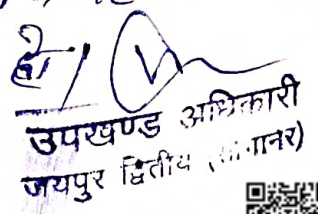 हो।
उपखण्ड अधिकारी
जयपुर द्वितीय (सांगानेर)